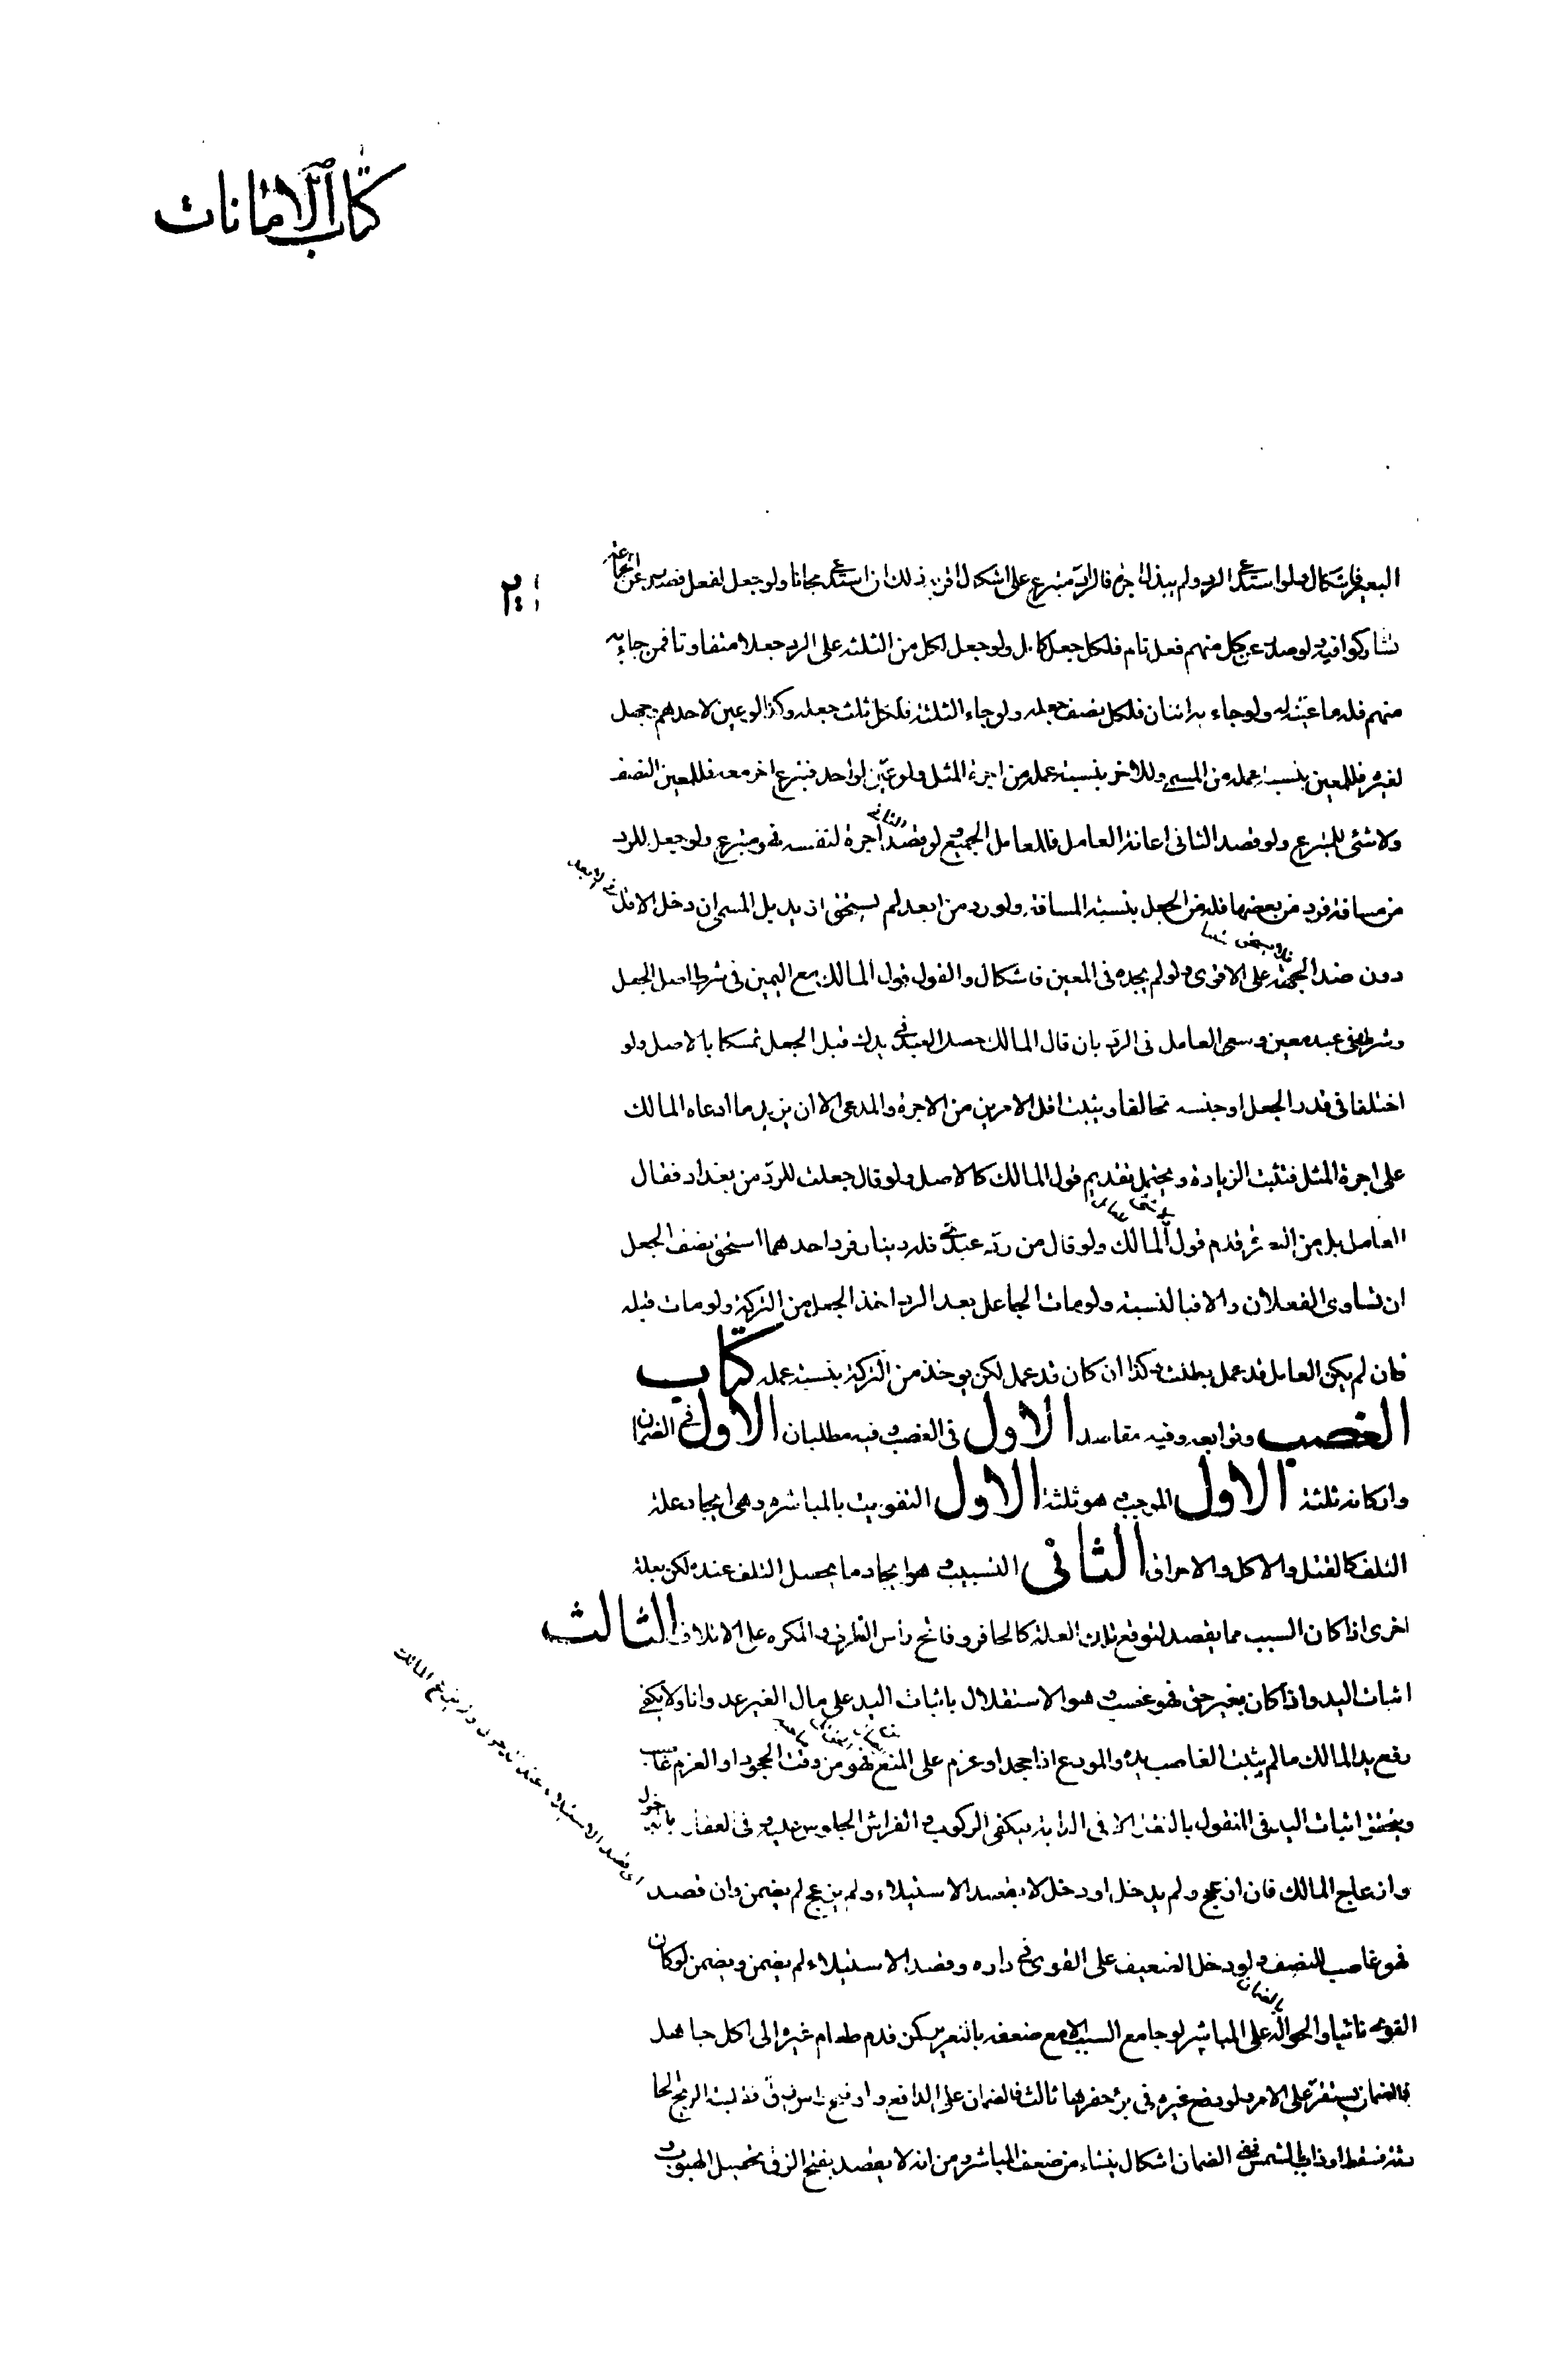 كتاب الامانات
البعير فاشكال ولو استدعى الرد ولم يبذل اجرة فالراد متبرع على اشكال اقربه ذلك ان استدعى مجانا ولو جعل لفعل فصدر عن جماعة
تشاركوا فيه ولو صدر عن كل منهم فعل تام فلكل جعل كامل ولو جعل لكل من الثلثة على الرد جعلا متفاوتا فمن جاء به
منهم فله ما عينه له ولو جاء به اثنان فلكل نصف جعله ولو جاء الثلثة فلكل ثلث جعله وكذا لو عين لاحدهم وجهل
لغيره فللمعين بنسبة عمله من المسمى وللاخر بنسبة عمله من اجرة المثل ولو عيّن لواحد فتبرع اخر معه فللمعين النصف
ولا شئ للمتبرع ولو قصد الثانى اعانة العامل فللعامل الجميع ولو قصد الثانى اجرة لنفسه فهو متبرع ولو جعل للرد
من مسافة فرد من بعضها فله من الجعل بنسبة المسافة ولو رد من ابعد لم يستحق ازيد بل المسمى ان دخل الاقل فى الابعد
دون ضد الجهة على الاقوى ولو لم يجده فى المعين فاشكال والقول قول المالك مع اليمين فى شرط اصل الجعل
وشرطه فى عبد معين وسعى العامل فى الردّ بان قال المالك حصل العبد فى يدك قبل الجعل تمسكا بالاصل ولو
اختلفا فى قدر الجعل او جنسه تحالفا ويثبت اقل الامرين من الاجرة والمدعى الا ان يزيد ما ادعاه المالك
على اجرة المثل فتثبت الزيادة ويحتمل تقديم قول المالك كالاصل ولو قال جعلت للردّ من بغداد فقال
العامل بل من البصرة قدم قول المالك ولو قال من ردّ عبدىّ فله دينار فرد احدهما استحق نصف الجعل
ان تساوى الفعلان والا فبالنسبة ولو مات الجاعل بعد الرد اخذ الجعل من التركة ولو مات قبله
فان لم يكن العامل قد عمل بطلت وكذا ان كان قد عمل لكن يوخذ من التركة بنسبة عمله كتاب
الغصب وتوابعه وفيه مقاصد الاول فى الغصب وفيه مطلبان الاول فى الضمان
واركانه ثلثة الاول الموجب وهو ثلثة الاول التفويت بالمباشرة وهى ايجاد علة
التلف كالقتل والاكل والاحراق الثانى التسبيب وهو ايجاد ما يحصل التلف عنده لكن بعلة
اخرى اذا كان السبب مما يقصد لتوقع تلك العلة كالحافر وفاتح راس الظرف والمكره على الاتلاف الثالث
اثبات اليد واذا كان بغير حق فهو غصب وهو الاستقلال باثبات اليد على مال الغير عدوانا ولا يكفى
رفع يد المالك ما لم يثبت الغاصب يده والمودع اذا جحد او عزم على المنع فهو من وقت الجحود او العزم غاصب
ويتحقق اثبات اليد فى المنقول بالنقل الا فى الدابة فيكفى الركوب والفراش الجلوس عليه وفى العقار بالدخول
وازعاج المالك فان ازعج ولم يدخل او دخل لا بقصد الاستيلاء ولم يزعج لم يضمن وان قصد
فهو غاصب للنصف ولو دخل الضعيف على القوى فى داره وقصد الاستيلاء لم يضمن ويضمن لو كان
القوى نائيا والحوالة بالضمان على المباشر لو جامع السبب الا مع ضعفه بالتغرير كمن قدم طعام غيره الى اكل جاهل
فالضمان يستقرّ على الامر ولو دفع غيره فى بئر حفرها ثالث فالضمان على الدافع ولو فتح راس زق فقلبته الريح الحا
دثة فسقط او ذاب بالشمس ففى الضمان اشكال ينشاء من ضعف المباشر ومن انه لا يقصد بفتح الزق تحصيل الهبوب